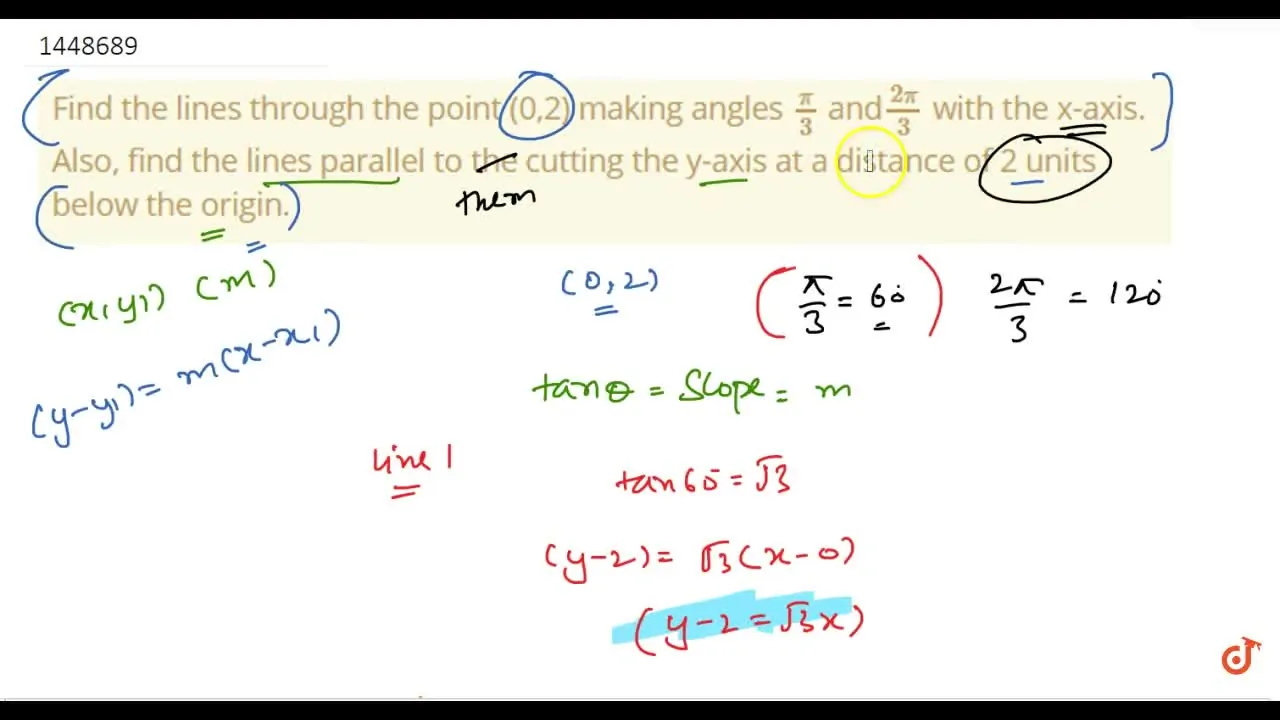 1448689
Find the lines through the point (0,2) making angles π/3 and 2π/3 with the x-axis.
Also, find the lines parallel to the cutting the y-axis at a distance of 2 units
them
below the origin.
(x1 y1) (m)
(0, 2)
(π/3 = 60°) 2π/3 = 120°
(y-y1) = m(x-x1)
tanθ = Slope = m
Line 1
tan60° = √3
(y-2) = √3(x-0)
(y-2 = √3x)